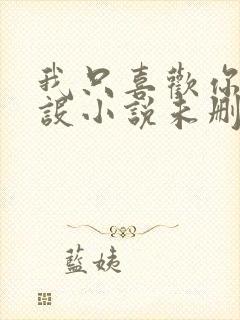 我只喜歡你
設小說未刪
藍姨